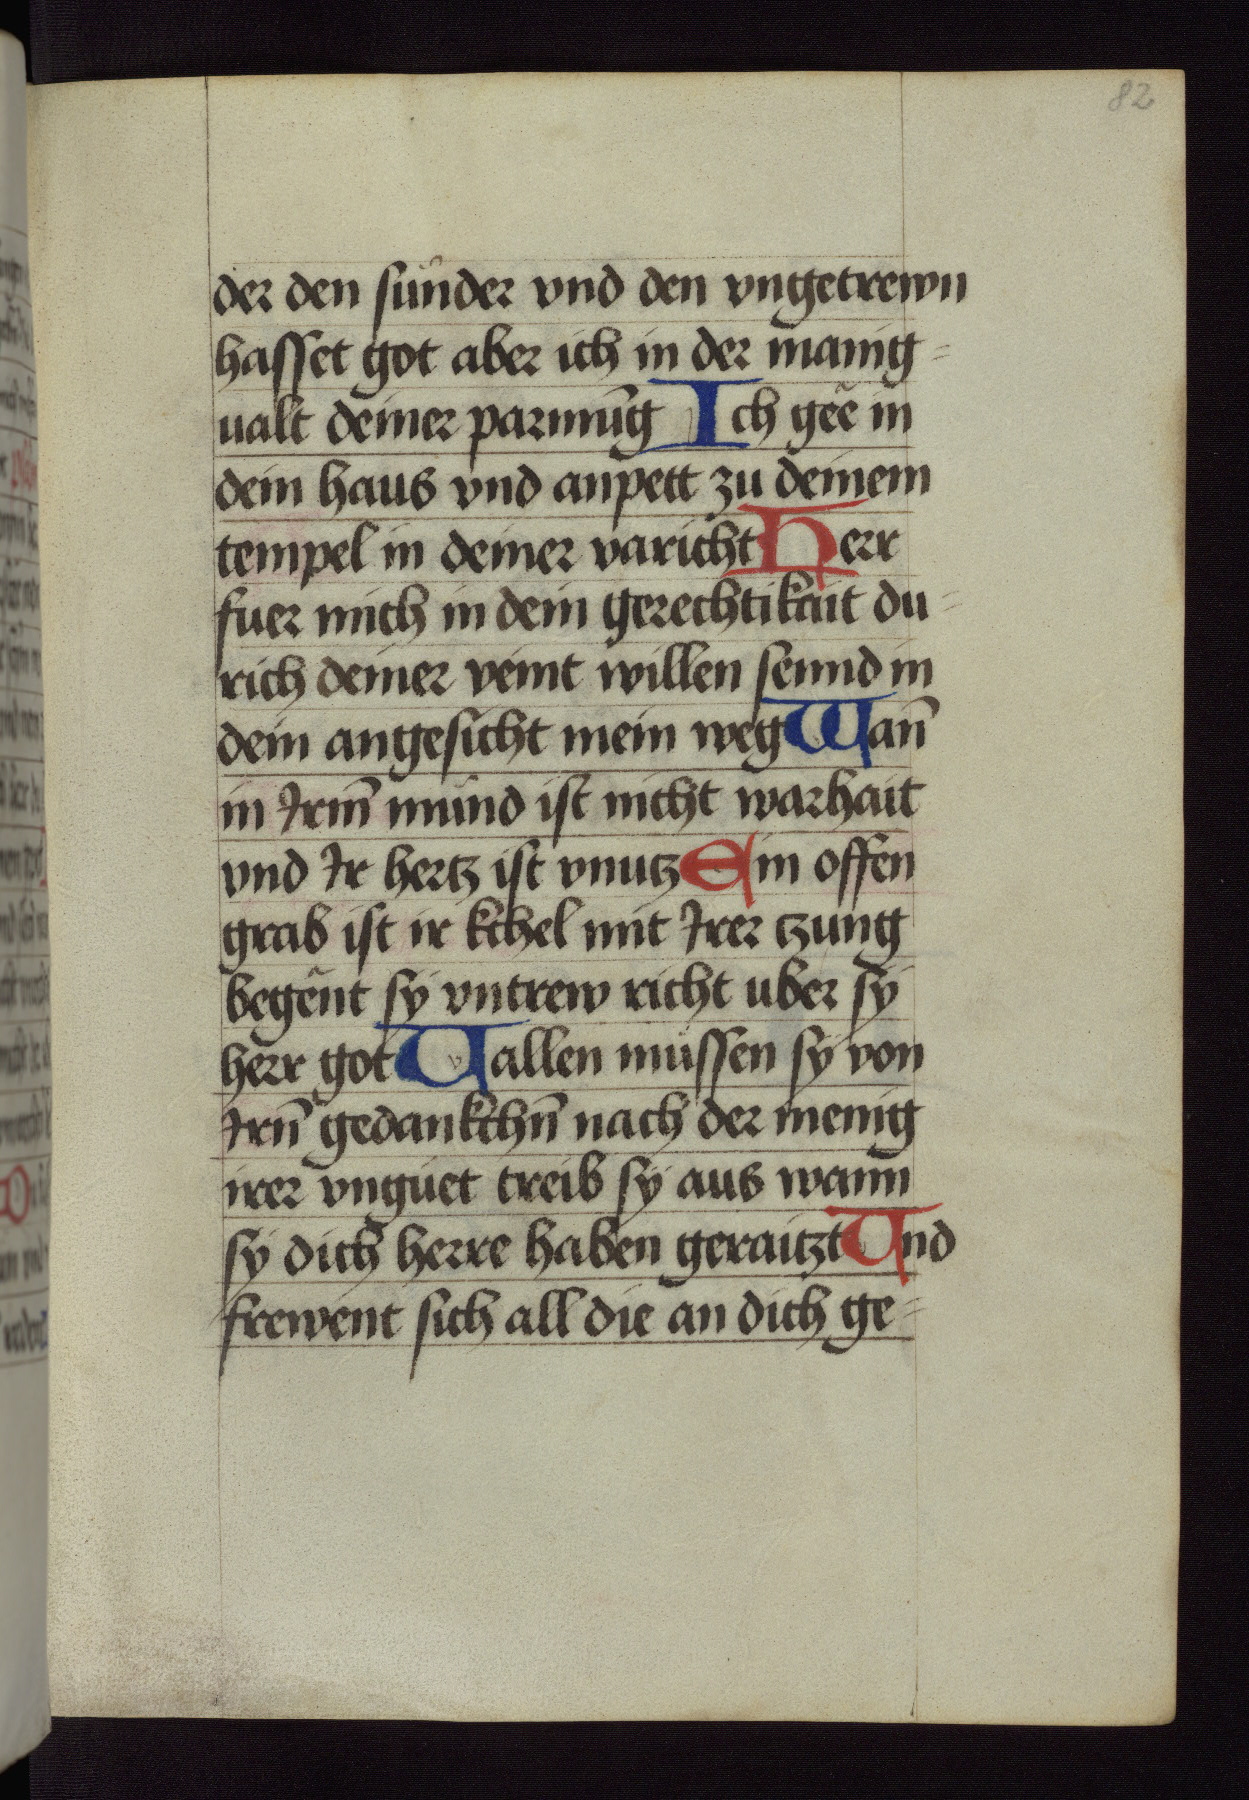 82
der den sunder vnd den vngetrewn
hasset got aber ich in der manig=
ualt deiner parmūg Ich gee in
dein haus vnd anpett zu deinem
tempel in deiner varicht Herr
fuer mich in dein gerechtikait du=
rich deiner veint willen sennd in
dein angesicht mein weg Wan̄
in Irm̄ mund ist nicht warhait
vnd Ir hertz ist vnutz Ein offen
grab ist ir kchel mit Irer tzung
begent sy vntrew richt uber sy
herr got Uallen mussen sy von
Irn̄ gedankchn̄ nach der menig
irer vnguet treib sy aus wann
sy dich herre haben geraitzt Und
frewent sich all die an dich ge=